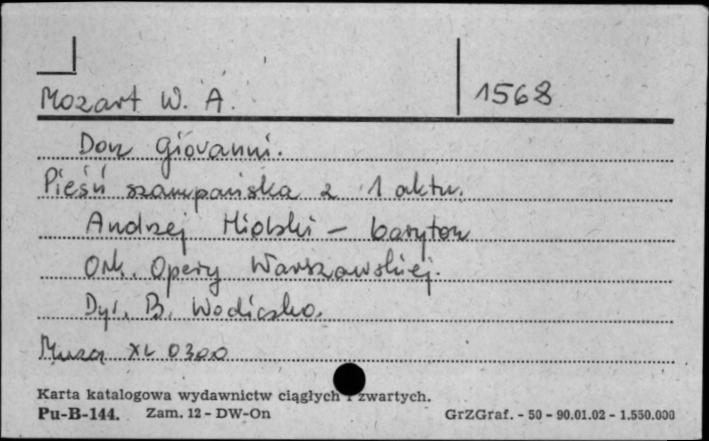 Mozart W. A.
1568
Don Giovanni.
Pieśń szampańska z 1 aktu.
Andrzej Hiolski - baryton
Ork. Opery Warszawskiej.
Dyr. B. Wodiczko.
Muza XL 0300
Karta katalogowa wydawnictw ciągłych i zwartych.
Pu-B-144. Zam. 12 - DW-On GrZGraf. - 50 - 90.01.02 - 1.550.000